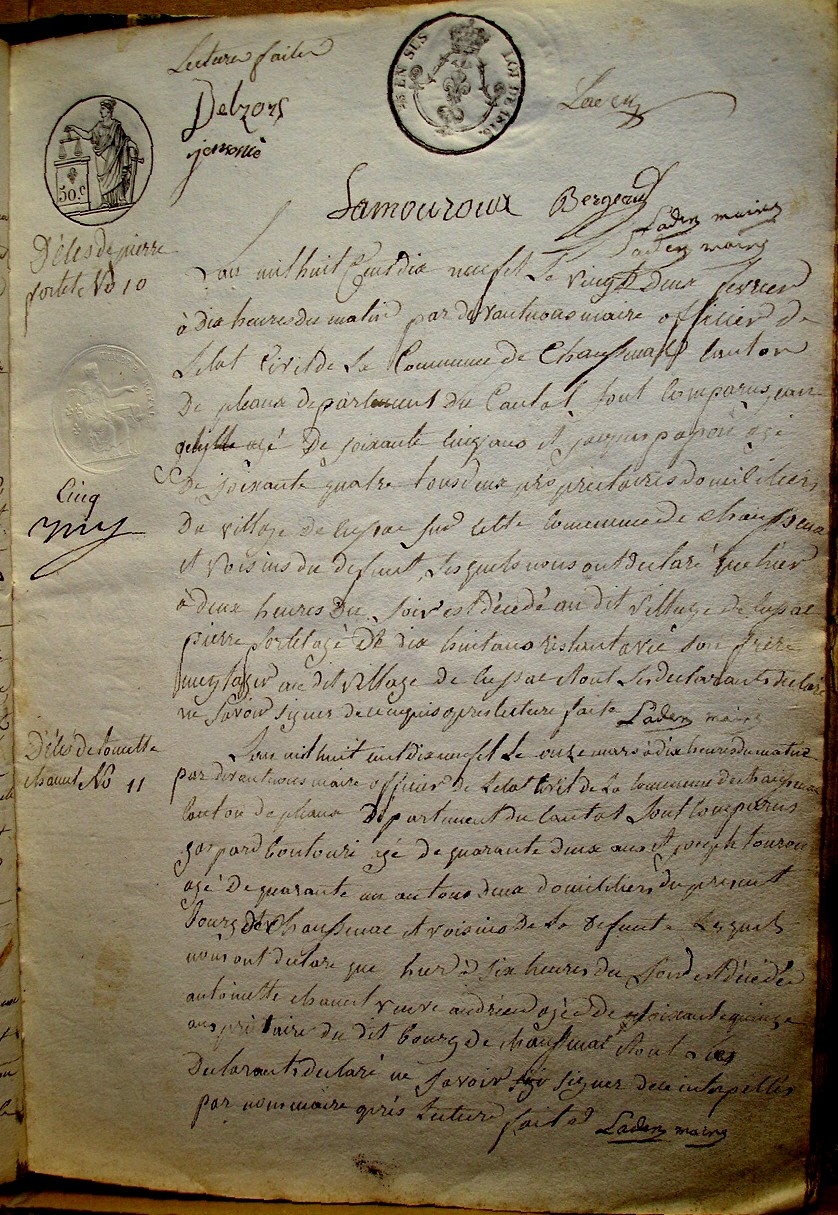 Lecture faite
25 EN SUS LOI DE 1816
Delzors
50 c
Lamouroux Bergeaud
Laden maire
Laden maire
Décés de pierre
sortet No 10
L'an mil huit Cent dix neuf et Le vingt deux fevrier
à dix heures du matin par devant nous maire officier de
Letat Civil de La Commune de Chaussenac Canton
De pleaux departement du Cantal sont Comparus jean
agé De soixante cinq ans et jacques agé
De soixante quatre tous deux proprietaires domicilies
Cinq
Du village De Cussac sur cette Commune de Chaussenac
et voisins du defunt, Lesquels nous ont declaré que hier
à deux heures Du soir est décedé au dit village de Cussac
pierre sortet agé De dix huit ans restant avec son frere
au dit village de Cussac et ont Les declarants declaré
ne savoir signer de ce requis après Lecture faite Laden maire
Décés de toinette
chanet No 11
L'an mil huit cent dix neuf et Le onze mars à dix heures du matin
par devant nous maire officier de Letat Civil de La Commune de chaussenac
Canton de pleaux Departement du Cantal sont Comparus
gaspard agé de quarante deux ans et joseph
agé De quarante un an tous deux domiciliés du present
Bourg De Chaussenac et voisins De La defunte Lesquels
nous ont declare que hier à six heures du soir est décédée
antoinette chanet veuve agée de soixante quinze
ans du dit bourg de Chaussenac et ont Les
Declarants declaré ne savoir signer de ce interpellés
par nous maire après Lecture faite Laden maire